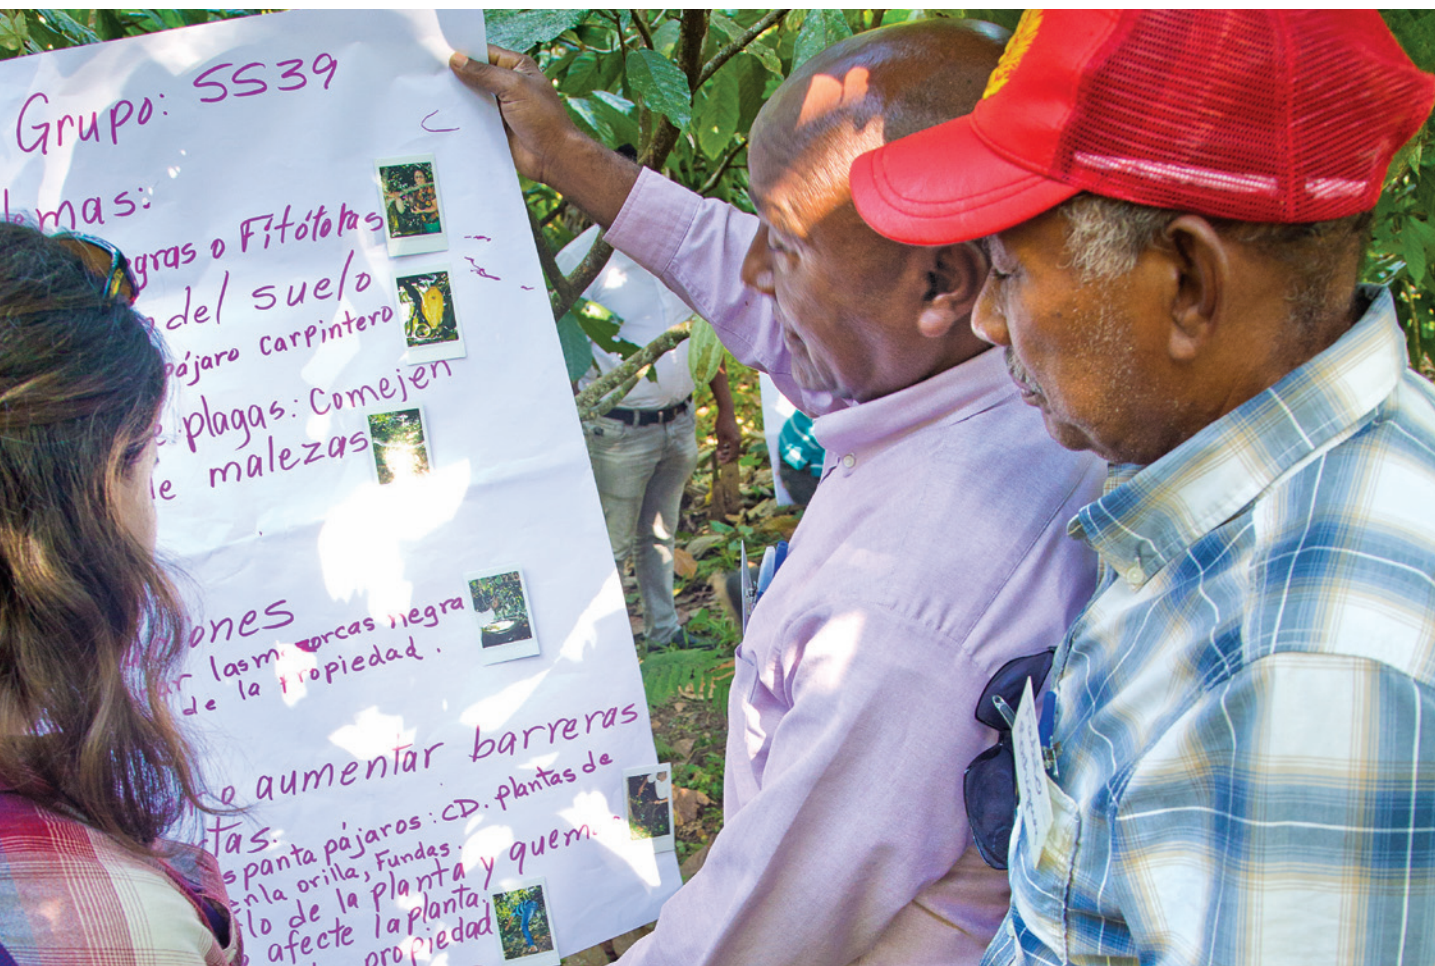 Grupo: SS39
lemas:
egras o Fitótotas
del suelo
pájaro carpintero
plagas: Comejen
de malezas
ones
ar las mazorcas negra
de la propiedad.
o aumentar barreras
tas.
spanta pájaros: CD. plantas de
en la orilla, Fundas.
lo de la planta y quem
afecte la planta.
propiedad